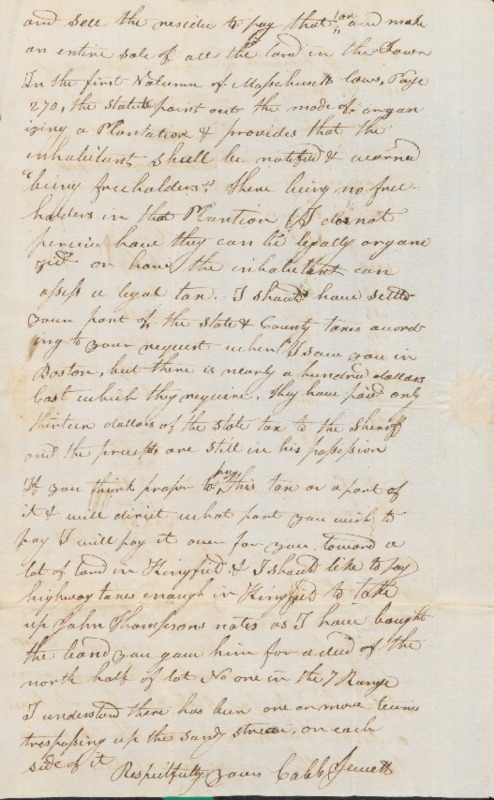 and sell the residue to pay that tax and make
an entire sale of all the land in the Town
In the first Volumn of Massachusetts laws, Page
270, the statute point out the mode of organ
izing a Plantation & provides that the
inhabitant shall be notified & warned
"being freeholders". There being no free-
holders in that Plantion I do not
perceive how they can be legally organi
zed or how the inhabitant can
assess a legal tax. I should have settled
your part of the State & County taxes accord
ing to your request when I saw you in
Boston, but there is nearly a hundred dollars
Cost which they require, they have paid only
thirteen dollars of the state tax to the Sheriff
and the precepts are still in his possession
If you think proper to pay this tax or a part of
it & will direct what part you wish to
pay I will pay it over for you toward a
lot of land in Kingfield & I should like to pay
highway taxes enough in Kingfield to take
up John Thompsons notes as I have bought
the bond you gave him for a deed of the
north half of lot No one in the 7 Range
I understand there has been one or more teams
trespassing up the sandy stream, on each
side of it
Respectfully yours Caleb Jewett